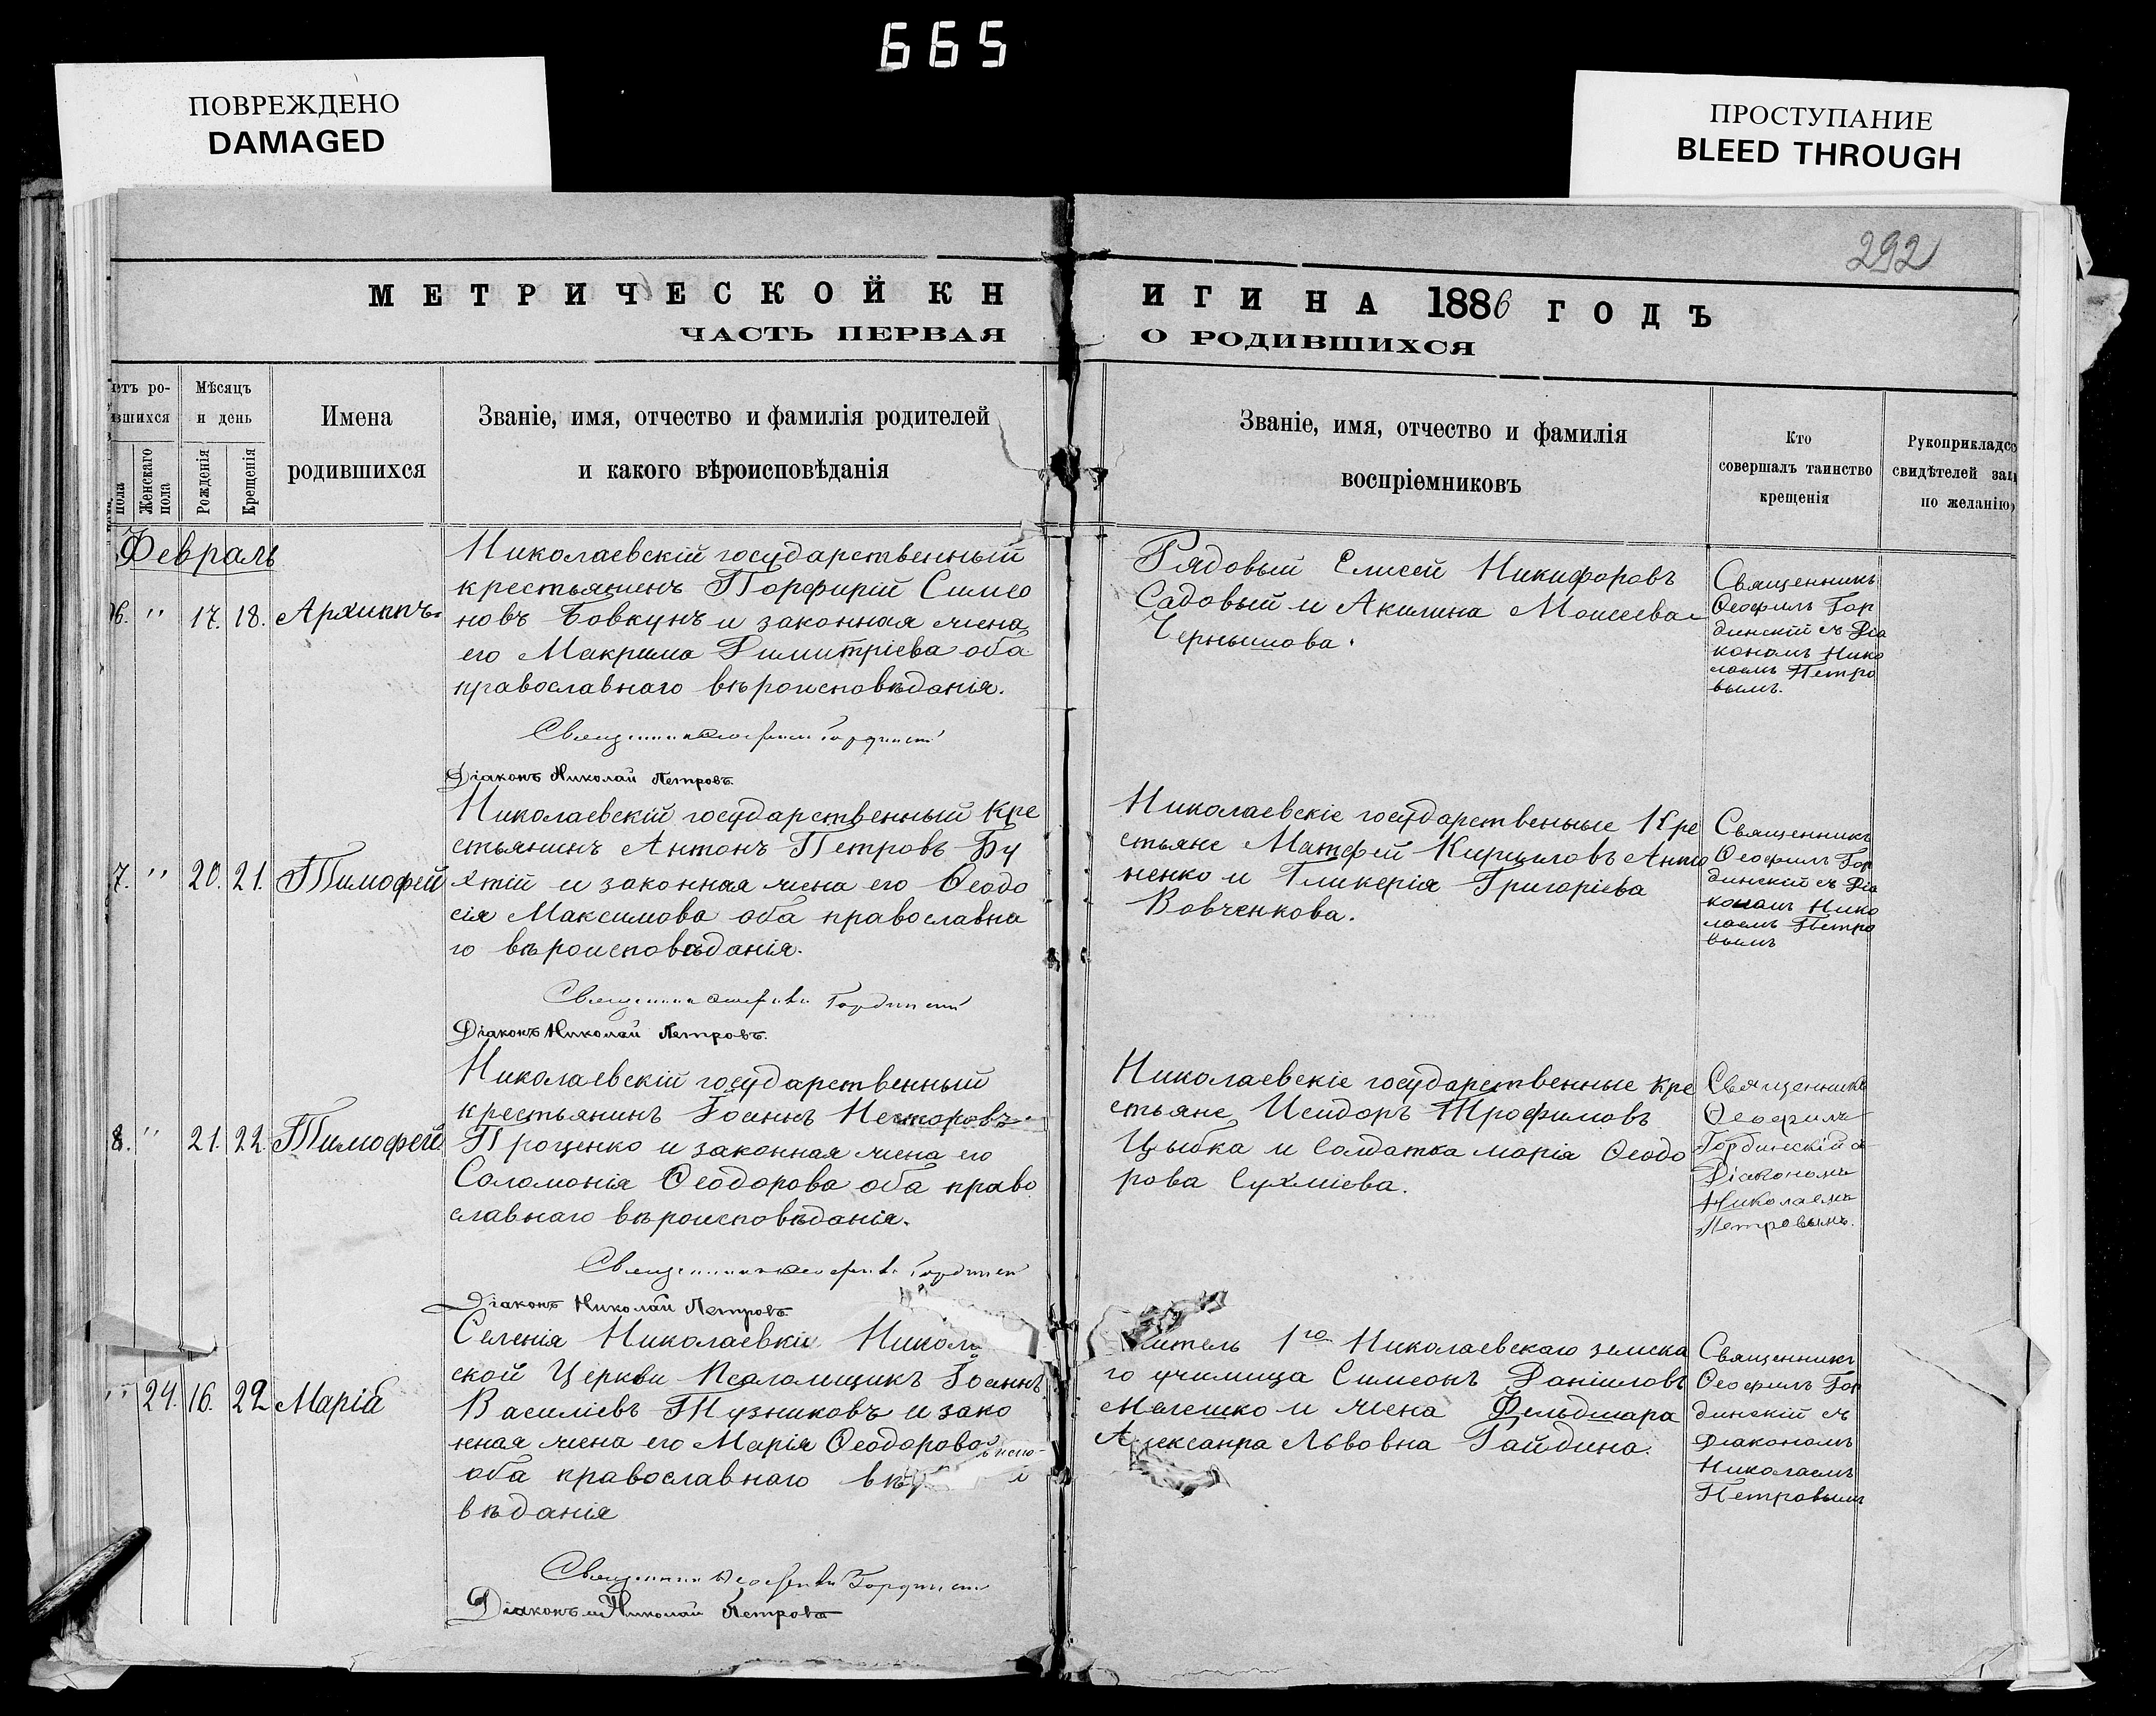 665
ПОВРЕЖДЕНО
DAMAGED
ПРОСТУПАНИЕ
BLEED THROUGH
292
МЕТРИЧЕСКОЙ КН
ИГИ НА 1886 ГОДЪ
ЧАСТЬ ПЕРВАЯ
О РОДИВШИХСЯ
етъ ро-
вшихся
пола
Женскаго
пола
Мѣсяцъ
и день
Рожденія
Крещенія
Имена
родившихся
Званіе, имя, отчество и фамилія родителей
и какого вѣроисповѣданія
Званіе, имя, отчество и фамилія
воспріемниковъ
Кто
совершалъ таинство
крещенія
Рукоприкладс
свидѣтелей зап
по желанію
Февраль
6. " 17. 18. Архиппъ.
Николаевскій государственный
крестьянинъ Порфирій Симео
новъ Бовкунъ и законная жена
его Макрина Димитріева оба
православнаго вѣроисповѣданія.
Священникъ Ѳеофилъ Гординскій
Діаконъ Николай Петровъ.
Рядовый Елисей Никифоровъ
Садовый и Акилина Моисеева
Чернышова.
Священникъ
Ѳеофилъ Гор
динскій съ Діа
кономъ Нико
лаемъ Петро
вымъ.
7. " 20. 21. Тимофей
Николаевскій государственный Кре
стьянинъ Антонъ Петровъ Бу
хтій и законная жена его Ѳеодо
сія Максимова оба православна
го вѣроисповѣданія.
Священникъ Ѳеофилъ Гординскій
Діаконъ Николай Петровъ.
Николаевскіе государственные Кре
стьяне Матфей Кирилловъ Анто
ненко и Гликерія Григоріева
Вовченкова.
Священникъ
Ѳеофилъ Гор
динскій съ Діа
кономъ Нико
лаемъ Петро
вымъ
8. " 21. 22. Тимофей
Николаевскій государственный
крестьянинъ Іоаннъ Несторовъ
Проценко и законная жена его
Соломонія Ѳеодорова оба право
славнаго вѣроисповѣданія.
Священникъ Ѳеофилъ Гординскій
Діаконъ Николай Петровъ
Николаевскіе государственные кре
стьяне Исидоръ Трофимовъ
Цыбка и Солдатка Марія Ѳеодо
рова Сухміева.
Священникъ
Ѳеофилъ
Гординскій съ
Діакономъ
Николаемъ
Петровымъ.
" 24. 16. 22 Марія
Селенія Николаевки Никола
ской Церкви Псаломщикъ Іоаннъ
Василіевъ Тузниковъ и зако
нная жена его Марія Ѳеодорова
оба православнаго вѣ
вѣданія
Священникъ Ѳеофилъ Гординскій
Діаконъ Николай Петровъ
итель 1го Николаевскаго земска
го училища Симеонъ Даніиловъ
Мелешко и жена Фельдшара
Александра Львовна Гайдина.
Священникъ
Ѳеофилъ Гор
динскій съ
Діакономъ
Николаемъ
Петровымъ